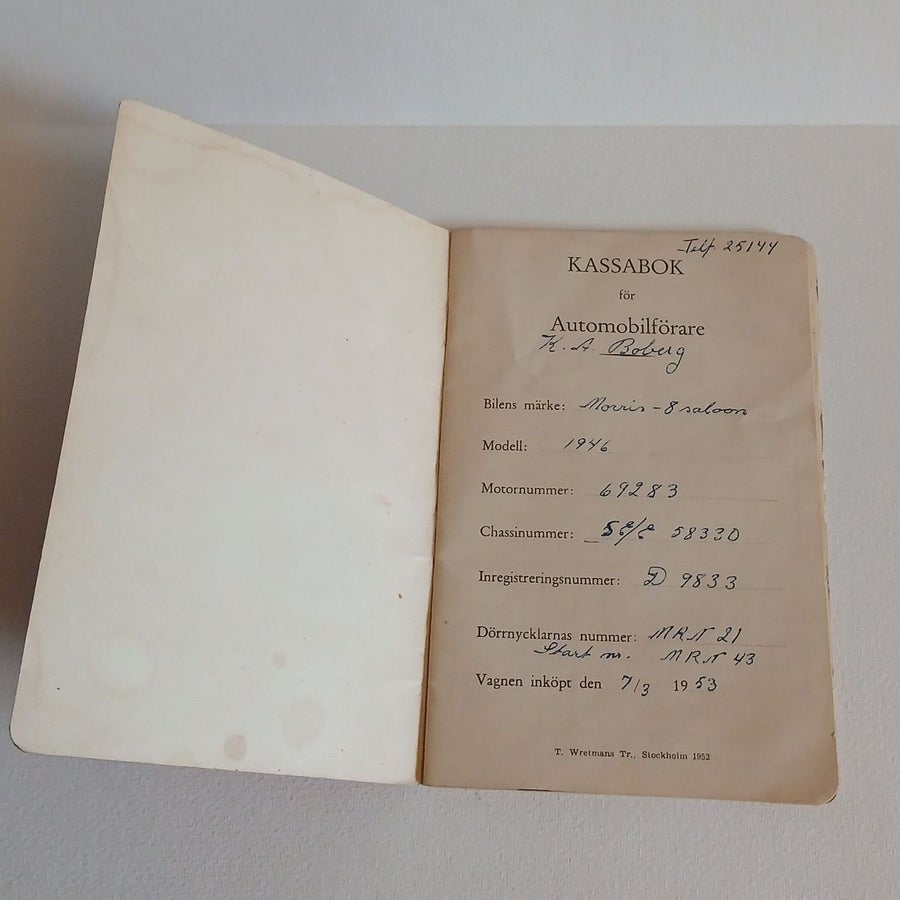 Telf. 25144
KASSABOK
för
Automobilförare
K. A. Boberg
Bilens märke: Morris - 8 saloon
Modell: 1946
Motornummer: 69283
Chassinummer: SE/E 58330
Inregistreringsnummer: D 9833
Dörrnycklarnas nummer: MRN 21
Start nr. MRN 43
Vagnen inköpt den 7/3 1953
T. Wretmans Tr., Stockholm 1952